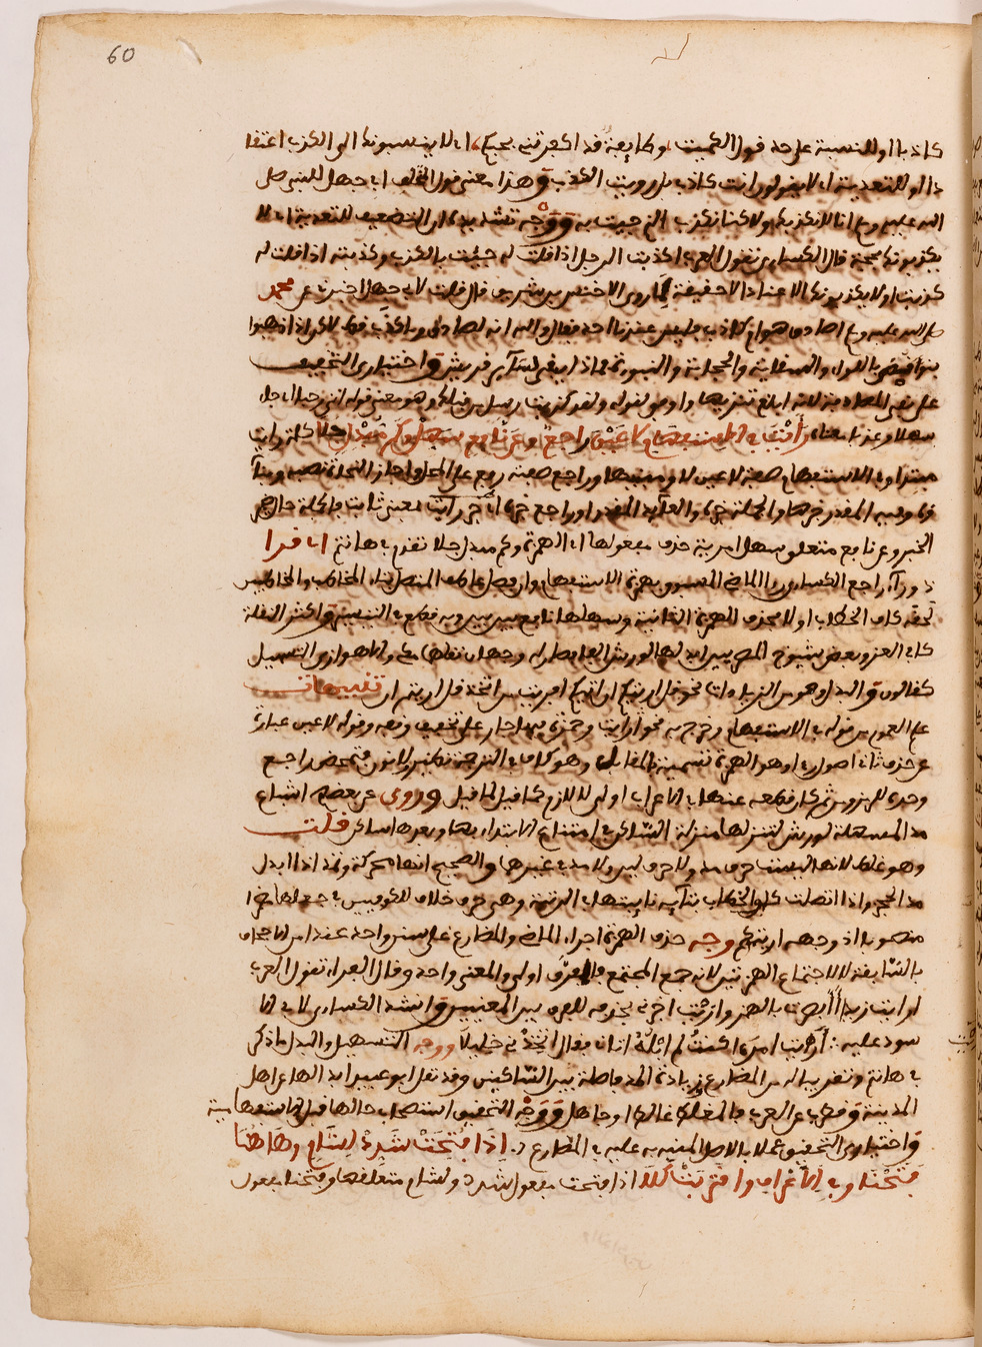 60
كاذبا او للنسبة على حد قول الكميت وطايفة قد اكفرتني بحبكم اي لا ينسبونك الى الكذب اعتقا
دا او للتعدية اي لا يقولون انت كاذب بل رويت الكذب وهذا معنى قول المخالف اي جهل للنبي صلى
الله عليه وسلم انا لا نكذبك ولكنا نكذب الذي جيت به ووجه تشديده ان التضعيف للتعدية اي لا
يكذبونك بحجة قال الكسائي تقول العرب اكذبت الرجل اذا قلت له جيت بالكذب وكذبته اذا قلت له
كذبت او لا يكذبونك الا عنادا لا حقيقة لما روي الاخنس بن شريق قال قلت لابي جهل اخبرني عن محمد
صلى الله عليه وسلم اصادق هو ام كاذب فليس عندنا احد فقال والله انه لصادق وما كذب قط ولكن اذا ذهبوا
بنو قصي باللواء والسقاية والحجابة والنبوة فماذا يبقى لسائر قريش واختياري التخفيف
على نفي المطاوعة لانه ابلغ تنزيها واوفق لقوله ولقد كذبت رسل من قبلك وهو معنى قوله اتى رحبا اي جاء
سهلا وعذبا معناه رأيت في الاستفهام لا عين راجع وعن نافع سهل وكم مبدل جلا كلمة رايت
مبتدا وفي الاستفهام صفته لا عين لا ومنفيها وراجع صفته رفع على المحل واجاز النحاة نصبه وبناه
وفيه المقدر خبرها والجملة خبره والعائد المقدر او راجع خبره اي اخر رايت معنى ثابت فالجملة حال ضم
الخبر وعن نافع متعلق سهل امر بة حذف مفعولها اي الهمزة وكم مبدل جلا تقدم في ها انتم اي قرا
ذو را راجع الكسائي را الماضي المسبوق بهمزة الاستفهام وان فصل عاطف المتصل بتاء المخاطب والمخاطبين
لحقه كاف الخطاب او لا بحذف الهمزة الثانية وسهلها نافع بين بين وبه قطع في التيسير واكثر النقلة
كابي العز وبعض شيوخ المصريين ابدلها لورش الفا نظر له وجهان نقلهما مكي وقال هو ازي التسهيل
كقالون والبدل وهو من الزيادات نحو قل اريتكم ارايتكم افريت من اتخذ قل اريتم ان تنبيهات
علم العموم من قوله في الاستفهام وخرج به نحو رايت وحمزة فيه جار على تخفيف وقفه وقوله لا عين عبارة
عن حذف ثاني اصول را او هو الهمزة تسمية بالمقابل وهو كلاف في الترجمة نظير لا نون فتمحض راجع
وحده للرمزين ثم كان قطعه عندها في الاعراب اولى للازم كما قيل لما قيل وروي عن بعضهم اشباع
مد المسهلة لورش لتنزلها منزلة الساكن في امتناع الابتداء بها وبعدها ساكن قلت
وهو غلط لانها ليست حرف مد ولا حرف لين ولا مد في غيرهما والصحيح انها محركة ويمد اذا ابدل
مد الحجز واذا اتصلت كلم الخطاب بتائه نابت هل في الترتيب وهي حرف خلافا للكوفيين في جعلها ضميرا
منصوبا اذ وجهه اريتكم وجه حذف الهمزة اجراء الماضي والمضارع على سنن واحد عند امن الاجحاف
بالسابقة لا لاجتماع الهمزتين لانه جمع المجتمع فالمفرق اولى والمعنى واحد وقال الفراء تقول العرب
ارايت زيدا أأبصرت بالهمز وارَيْتَ اخبرني بحذفه للفرق بين المعنيين وانشد الكسائي لابي الا
سود عليه: أريت امرءا كنتُ لم ابلُهُ اتاني فقال اتّخِذْني خليلا ووجه التسهيل والبدل ما ذكر
في ها انتم وتقريبا له من المضارع وزيادة المد فاصلة بين الساكنين وقد نقل ابو عبيد ابدالها عن اهل
المدينة وقطرب عن العرب فالمغلط غالط او جاهل ووجه التحقيق استصحاب حالها قبل الاستفهامية
واختياري التحقيق عملا بالاصل المنبه عليه في المضارع ص إذا فُتِحَتْ شَدِّدْ لِشَامٍ وَهَاهُنَا
فَتَحْنَا وفي الاعْرَافِ واقْتَرَبَتْ كِلاَ اذا فتحت مفعول شدد ولشام متعلقها وفتحنا مفعول